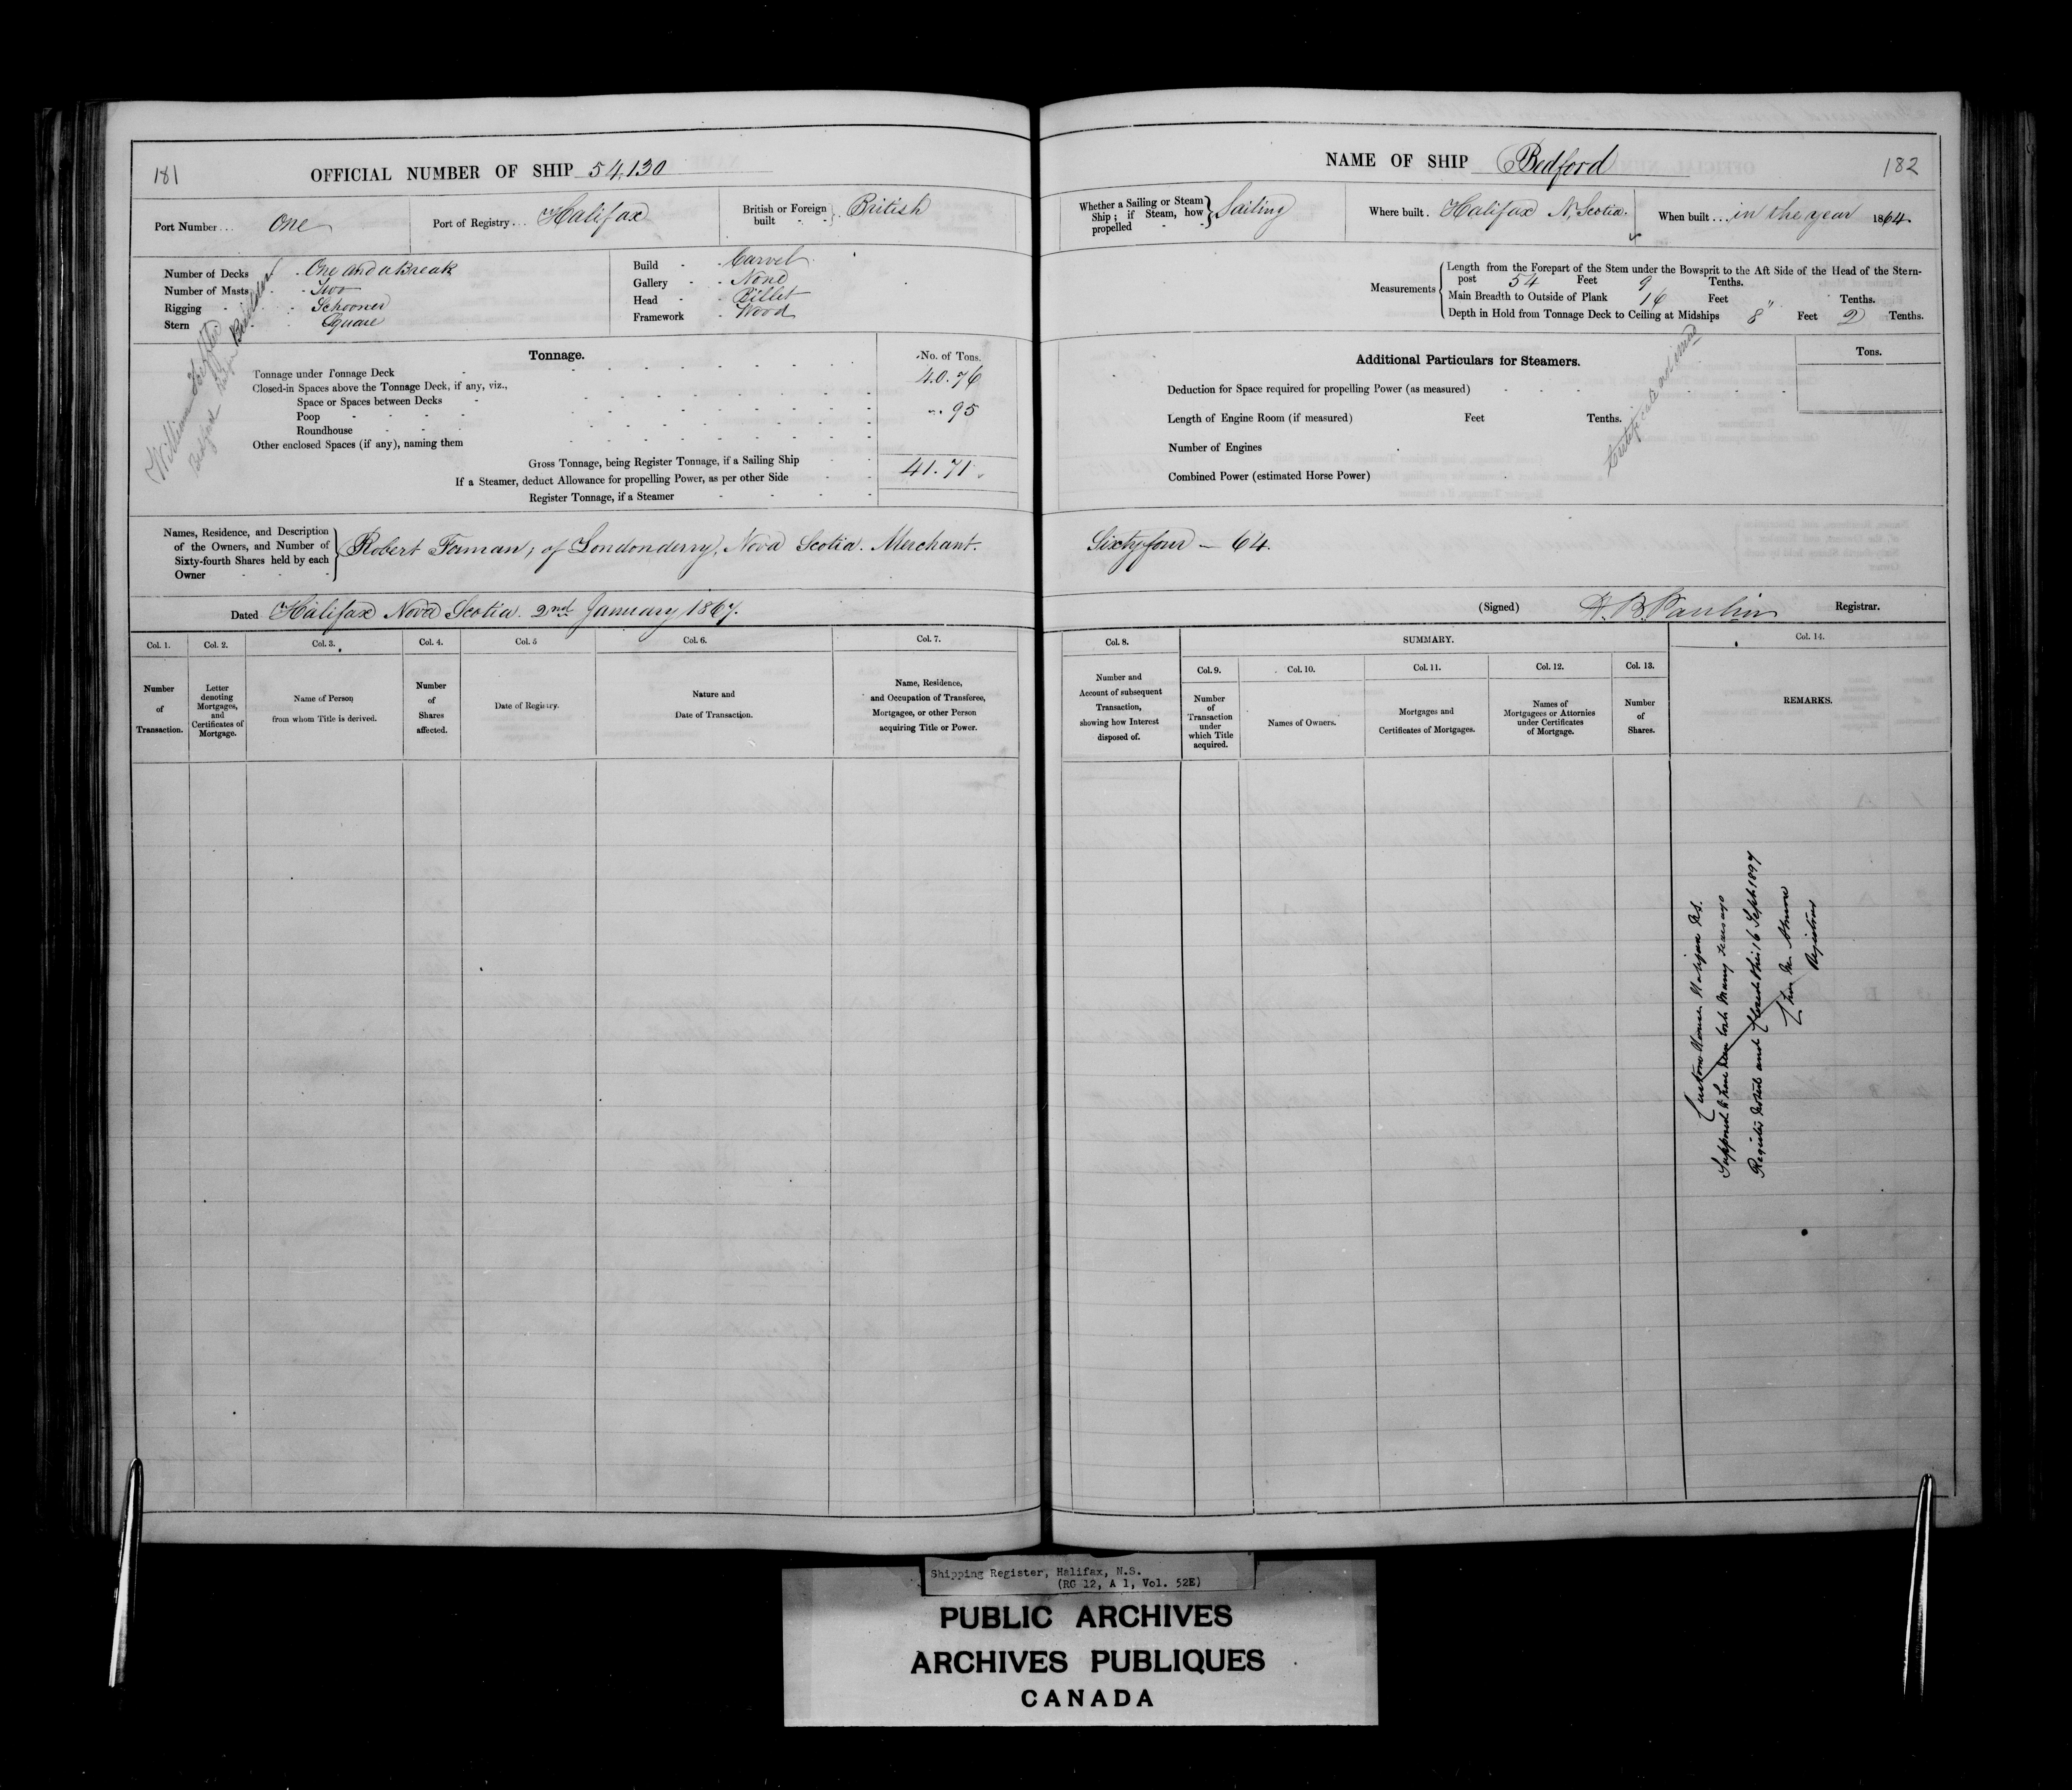 181
OFFICIAL NUMBER OF SHIP 54,130
Port Number... One
Port of Registry... Halifax
British or Foreign built - - } British
Number of Decks - One and a Break
Number of Masts - Two
Rigging - Schooner
Stern - Square
Build - Carvel
Gallery - None
Head - Billet
Framework - Wood
William
Bedford
Builder
Tonnage.
No. of Tons.
Tonnage under Tonnage Deck - 40.76
Closed-in Spaces above the Tonnage Deck, if any, viz.,
Space or Spaces between Decks -
Poop - - - - .95
Roundhouse - - -
Other enclosed Spaces (if any), naming them
Gross Tonnage, being Register Tonnage, if a Sailing Ship - - 41.71
If a Steamer, deduct Allowance for propelling Power, as per other Side - -
Register Tonnage, if a Steamer - - - -
Names, Residence, and Description
of the Owners, and Number of
Sixty-fourth Shares held by each
Owner - - -
Robert Forman, of Londonderry, Nova Scotia. Merchant.
Dated Halifax Nova Scotia. 2nd January 1867.
Col. 1. Col. 2. Col. 3. Col. 4. Col. 5 Col. 6. Col. 7.
Number of Transaction.
Letter denoting Mortgages, and Certificates of Mortgage.
Name of Person from whom Title is derived.
Number of Shares affected.
Date of Registry.
Nature and Date of Transaction.
Name, Residence, and Occupation of Transferee, Mortgagee, or other Person acquiring Title or Power.
NAME OF SHIP Bedford
182
Whether a Sailing or Steam Ship; if Steam, how propelled - - } Sailing
Where built. Halifax N. Scotia.
When built... in the year 1864
Measurements
Length from the Forepart of the Stem under the Bowsprit to the Aft Side of the Head of the Stern-
post 54 Feet 9 Tenths.
Main Breadth to Outside of Plank 16 Feet " Tenths.
Depth in Hold from Tonnage Deck to Ceiling at Midships 8 Feet 2 Tenths.
Additional Particulars for Steamers.
Tons.
Deduction for Space required for propelling Power (as measured)
Length of Engine Room (if measured) Feet Tenths.
Number of Engines
Combined Power (estimated Horse Power)
Certificate
Sixty four — 64.
(Signed) Registrar.
Col. 8.
SUMMARY.
Col. 9. Col. 10. Col. 11. Col. 12. Col. 13. Col. 14.
Number and Account of subsequent Transaction, showing how Interest disposed of.
Number of Transaction under which Title acquired.
Names of Owners.
Mortgages and Certificates of Mortgages.
Names of Mortgagees or Attornies under Certificates of Mortgage.
Number of Shares.
REMARKS.
Custom House Halifax N.S.
Supposed to have been lost Many Years ago
Register and Closed this 16 Sept 1897
Registrar
Shipping Register, Halifax, N.S.
(RG 12, A 1, Vol. 52E)
PUBLIC ARCHIVES
ARCHIVES PUBLIQUES
CANADA